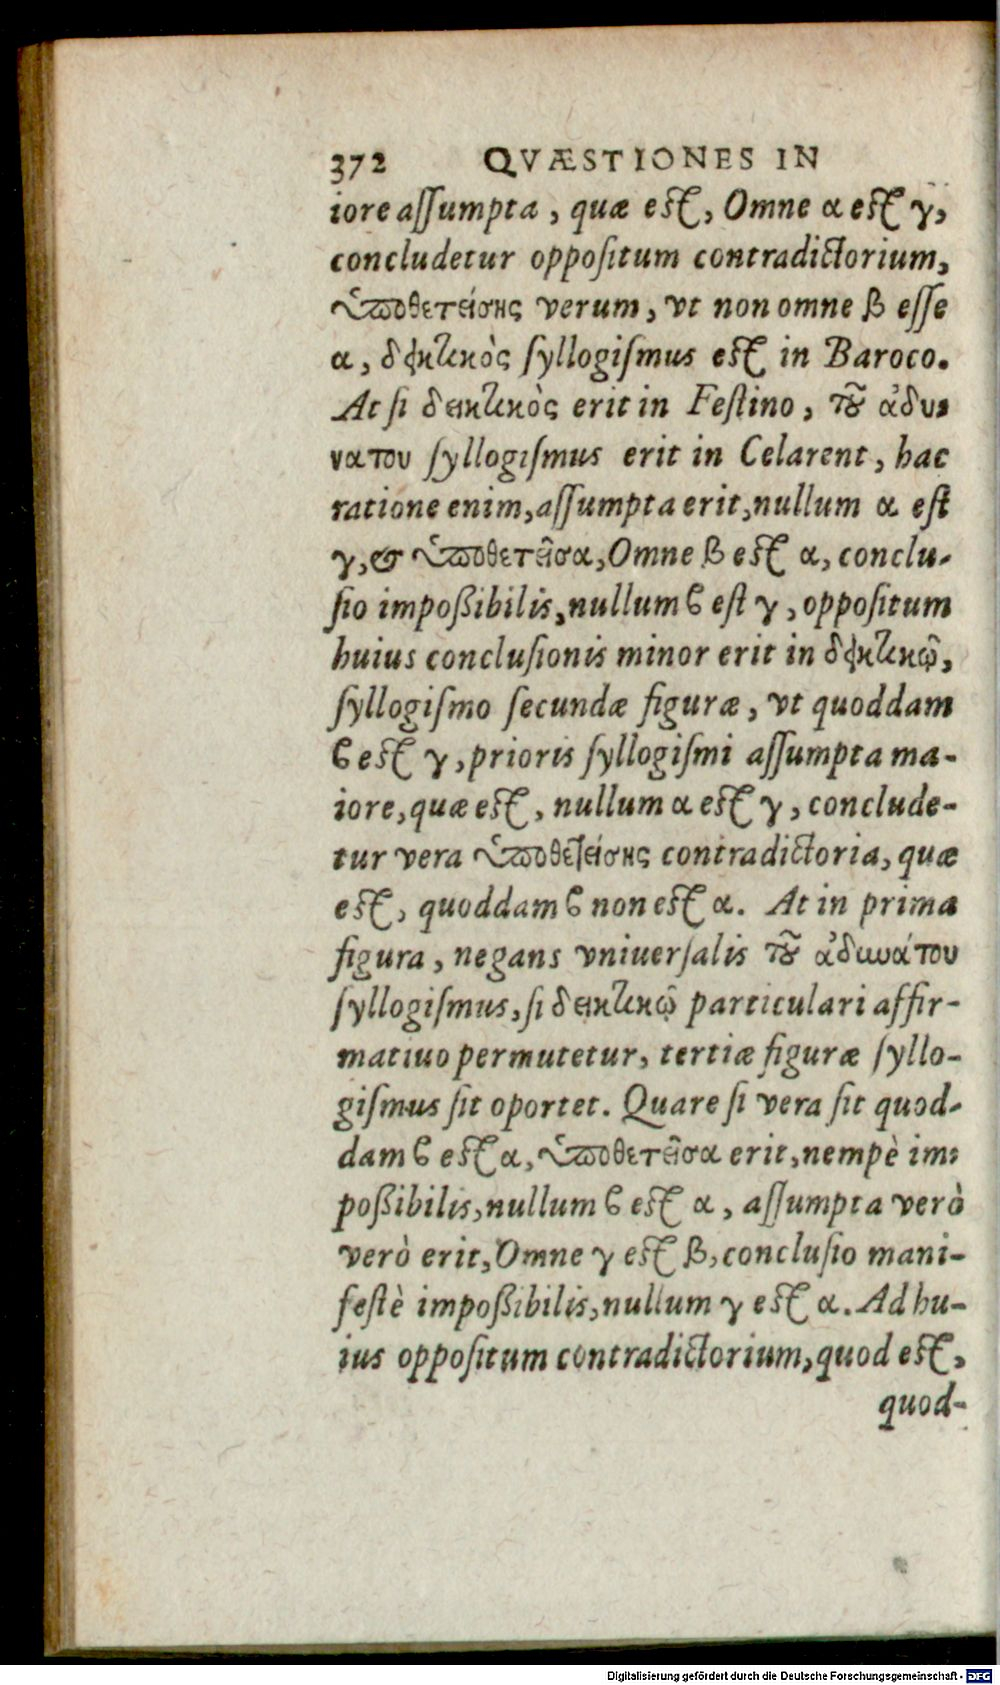 372 QVÆSTIONES IN
iore aſſumpta, quæ est, Omne α est γ,
concludetur oppoſitum contradictorium,
ὑποθετείσης verum, vt non omne β eſſe
α, δεικτικὸς ſyllogiſmus est in Baroco.
At ſi δεικτικὸς erit in Feſtino, τοῦ ἀδυ-
νατου ſyllogiſmus erit in Celarent, hac
ratione enim, aſſumpta erit, nullum α eſt
γ, & ὑποθετεῖσα, Omne β est α, conclu-
ſio impoßibilis, nullum ϐ eſt γ, oppoſitum
huius concluſionis minor erit in δεικτικῷ,
ſyllogiſmo ſecundæ figuræ, vt quoddam
ϐ est γ, prioris ſyllogiſmi aſſumpta ma-
iore, quæ est, nullum α est γ, conclude-
tur vera ὑποθετείσης contradictoria, quæ
est, quoddam ϐ non est α. At in prima
figura, negans vniuerſalis τοῦ ἀδυνάτου
ſyllogiſmus, ſi δεικτικῷ particulari affir-
matiuo permutetur, tertiæ figuræ ſyllo-
giſmus ſit oportet. Quare ſi vera ſit quod-
dam ϐ est α, ὑποθετεῖσα erit, nempè im-
poßibilis, nullum ϐ est α, aſſumpta verò
verò erit, Omne γ est β, concluſio mani-
feſtè impoßibilis, nullum γ est α. Ad hu-
ius oppoſitum contradictorium, quod est,
quod-
Digitalisierung gefördert durch die Deutsche Forschungsgemeinschaft - DFG